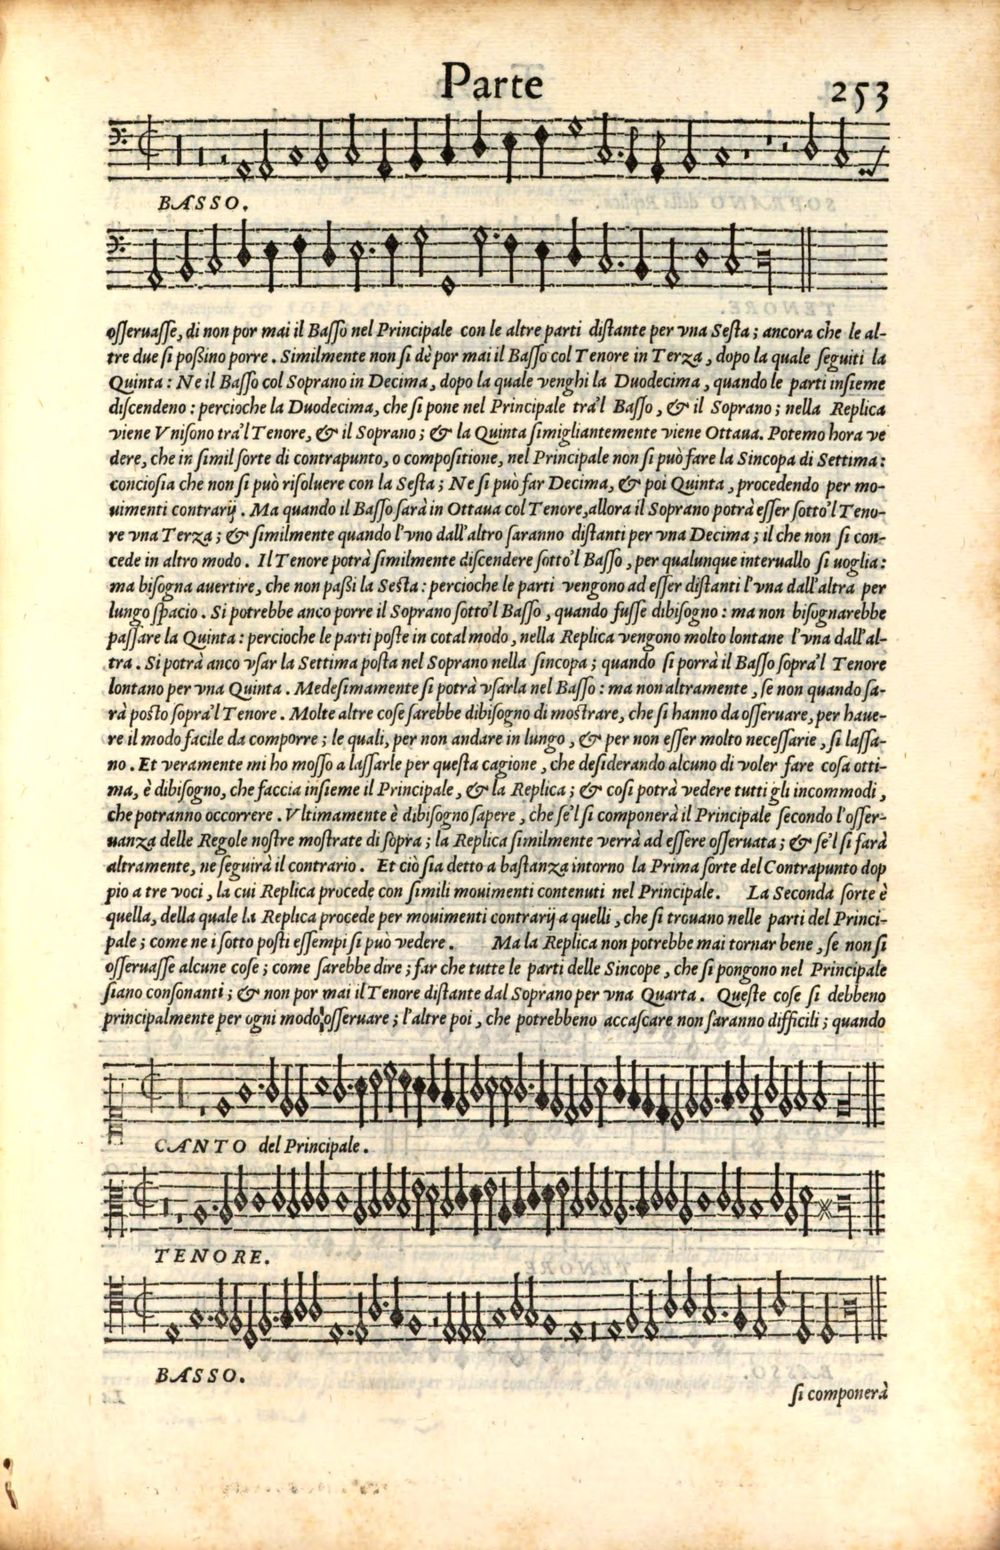 Parte
253
BASSO.
osseruasse, di non por mai il Basso nel Principale con le altre parti distante per vna Sesta; ancora che le al-
tre due si poßino porre. Similmente non si dè por mai il Basso col Tenore in Terza, dopo la quale seguiti la
Quinta: Ne il Basso col Soprano in Decima, dopo la quale venghi la Duodecima, quando le parti insieme
discendeno: percioche la Duodecima, che si pone nel Principale tra'l Basso, & il Soprano; nella Replica
viene Vnisono tra'l Tenore, & il Soprano; & la Quinta simigliantemente viene Ottaua. Potemo hora ve
dere, che in simil sorte di contrapunto, o compositione, nel Principale non si può fare la Sincopa di Settima:
conciosia che non si può risoluere con la Sesta; Ne si può far Decima, & poi Quinta, procedendo per mo-
uimenti contrarij. Ma quando il Basso sarà in Ottaua col Tenore, allora il Soprano potrà esser sotto'l Teno-
re vna Terza; & similmente quando l'vno dall'altro saranno distanti per vna Decima; il che non si con-
cede in altro modo. Il Tenore potrà similmente discendere sotto'l Basso, per qualunque interuallo si uoglia:
ma bisogna auertire, che non paßi la Sesta: percioche le parti vengono ad esser distanti l'vna dall'altra per
lungo spacio. Si potrebbe anco porre il Soprano sotto'l Basso, quando fusse dibisogno: ma non bisognarebbe
passare la Quinta: percioche le parti poste in cotal modo, nella Replica vengono molto lontane l'vna dall'al-
tra. Si potrà anco vsar la Settima posta nel Soprano nella sincopa; quando si porrà il Basso sopra'l Tenore
lontano per vna Quinta. Medesimamente si potrà vsarla nel Basso: ma non altramente, se non quando sa-
rà posto sopra'l Tenore. Molte altre cose sarebbe dibisogno di mostrare, che si hanno da osseruare, per haue-
re il modo facile da comporre; le quali, per non andare in lungo, & per non esser molto necessarie, si lassa-
no. Et veramente mi ho mosso a lassarle per questa cagione, che desiderando alcuno di voler fare cosa otti-
ma, è dibisogno, che faccia insieme il Principale, & la Replica; & cosi potrà vedere tutti gli incommodi,
che potranno occorrere. Vltimamente è dibisogno sapere, che se'l si componerà il Principale secondo l'osser-
uanza delle Regole nostre mostrate di sopra; la Replica similmente verrà ad essere osseruata; & se'l si farà
altramente, ne seguirà il contrario. Et ciò sia detto a bastanza intorno la Prima sorte del Contrapunto dop
pio a tre voci, la cui Replica procede con simili mouimenti contenuti nel Principale. La Seconda sorte è
quella, della quale la Replica procede per mouimenti contrarij a quelli, che si trouano nelle parti del Princi-
pale; come ne i sotto posti essempi si può vedere. Ma la Replica non potrebbe mai tornar bene, se non si
osseruasse alcune cose; come sarebbe dire; far che tutte le parti delle Sincope, che si pongono nel Principale
siano consonanti; & non por mai il Tenore distante dal Soprano per vna Quarta. Queste cose si debbeno
principalmente per ogni modo osseruare; l'altre poi, che potrebbeno accascare non saranno difficili; quando
CANTO del Principale.
TENORE.
BASSO.
si componerà